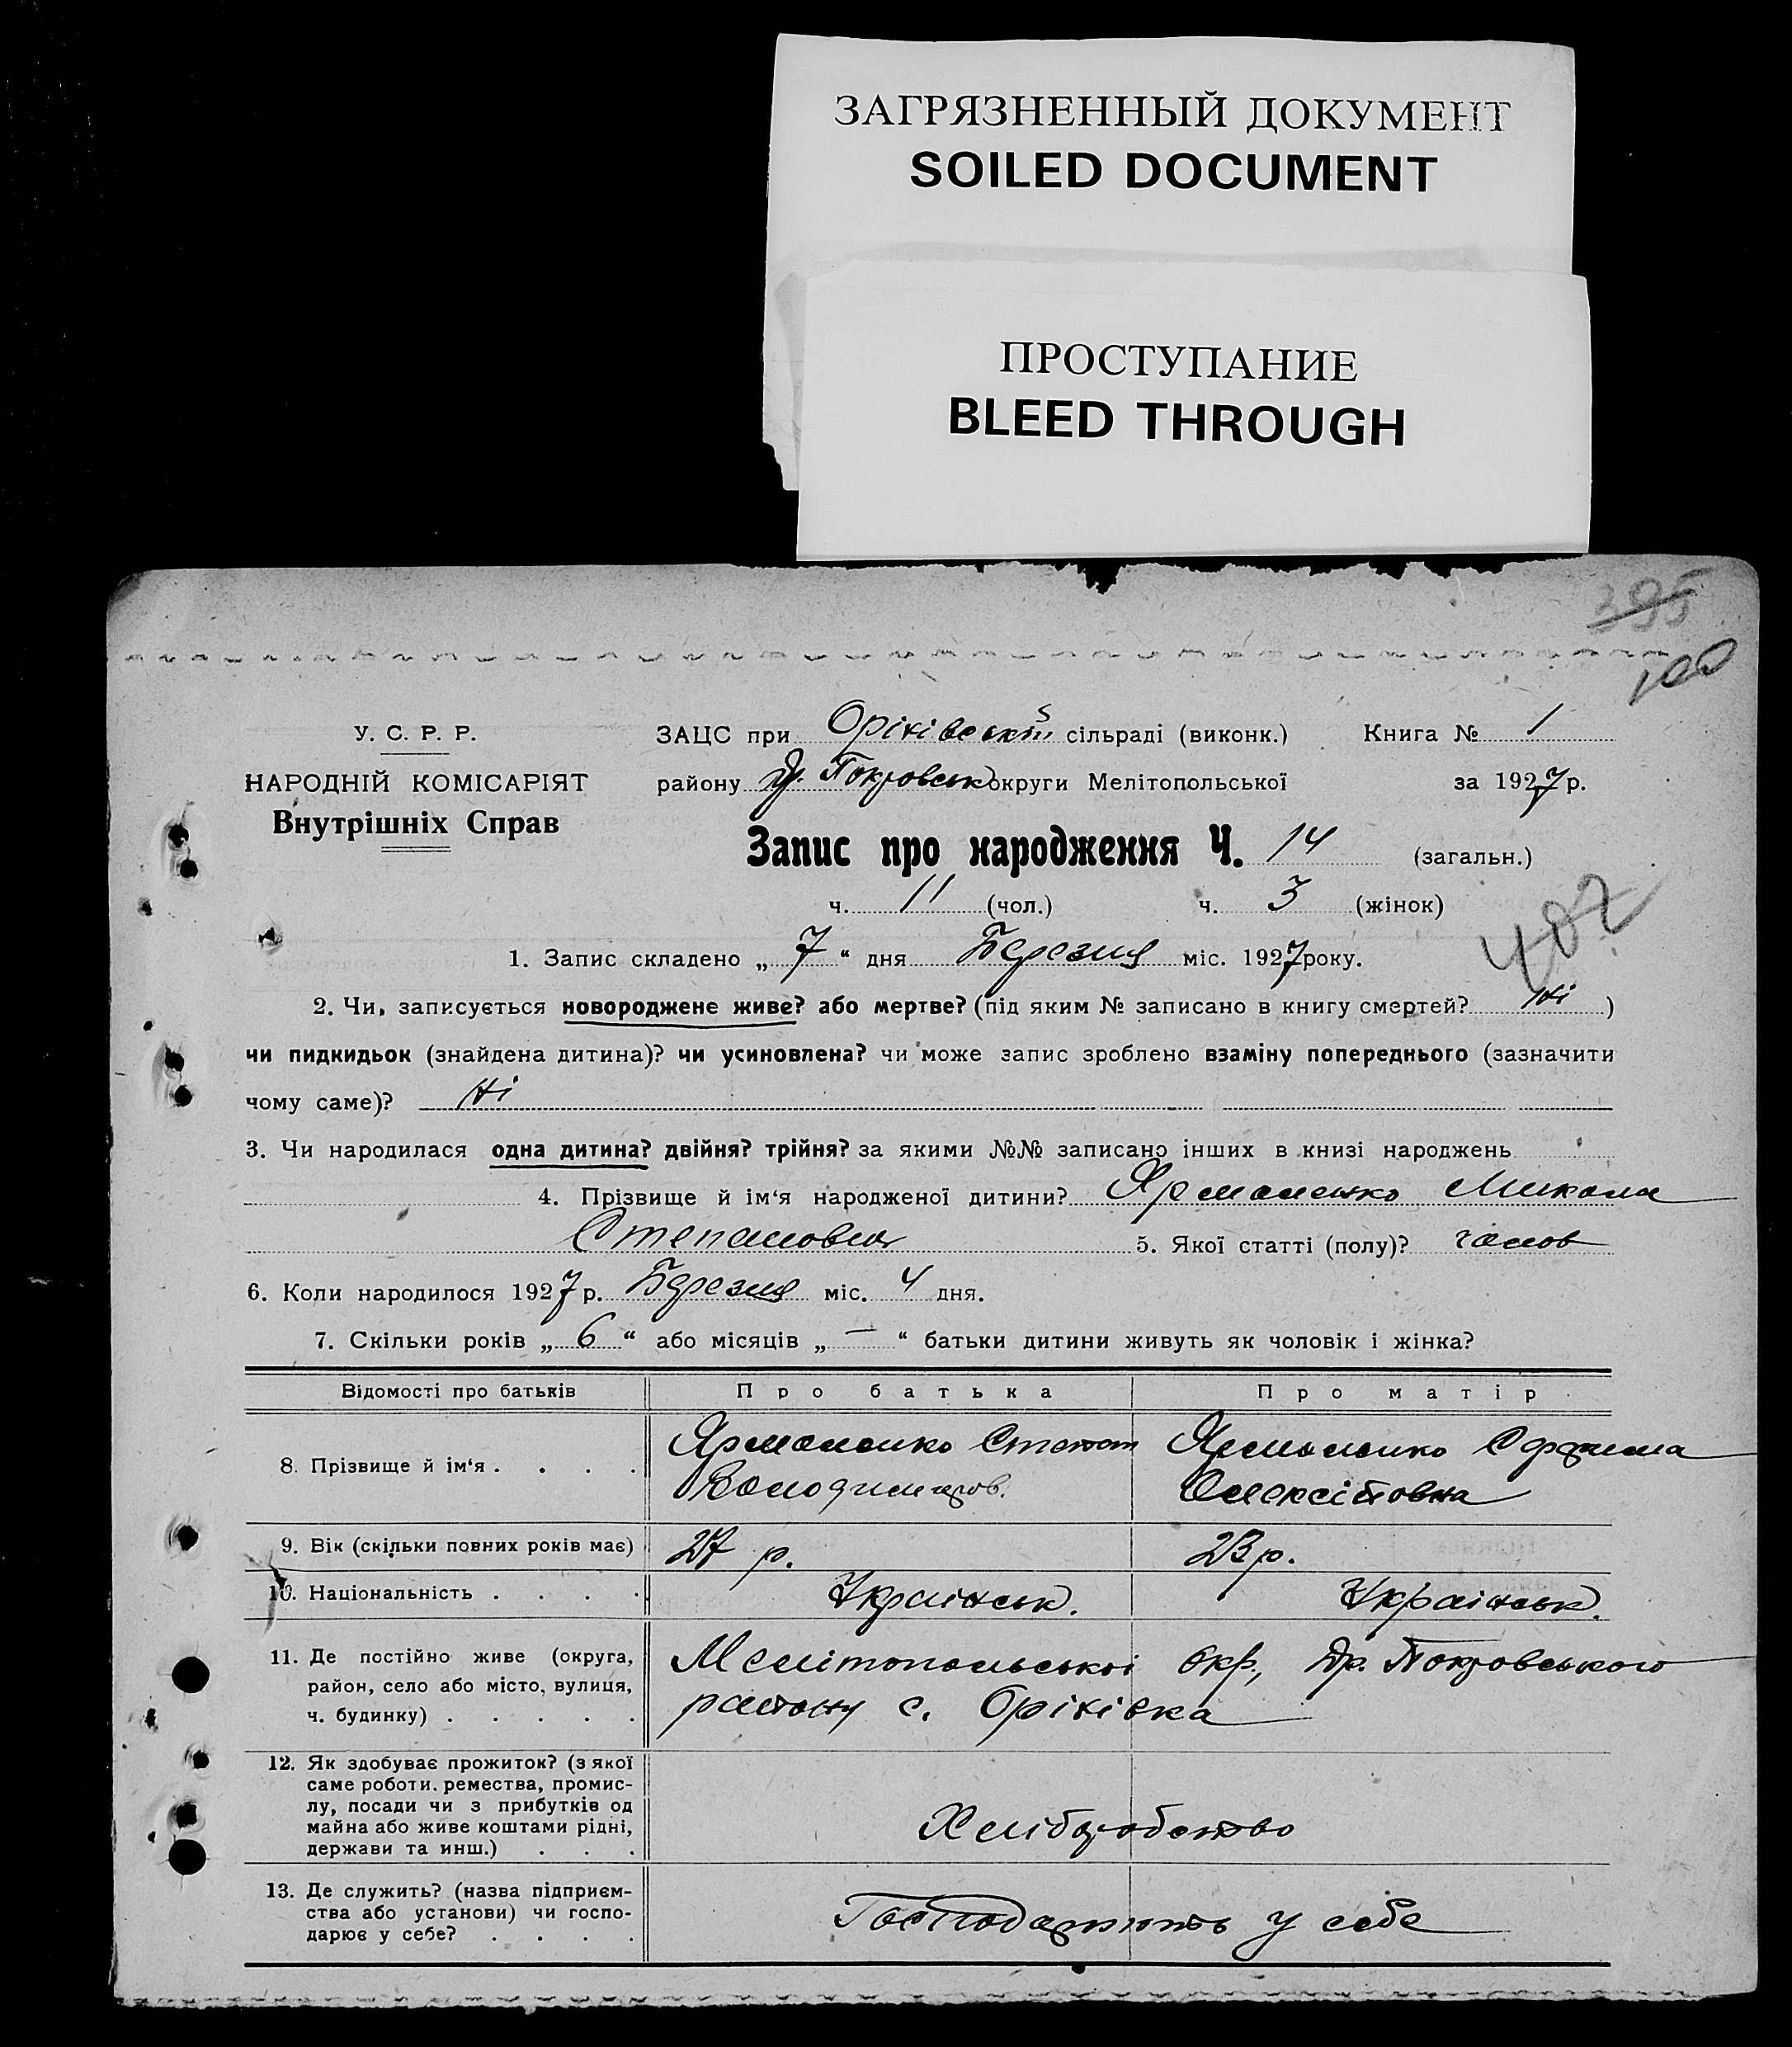 ЗАГРЯЗНЕННЫЙ ДОКУМЕНТ
SOILED DOCUMENT
ПРОСТУПАНИЕ
BLEED THROUGH
395
400
У. С. Р. Р.
НАРОДНІЙ КОМІСАРІЯТ
Внутрішніх Справ
ЗАЦС при Оріхівській сільраді (виконк.) Книга № 1
району Др. Покровськ округи Мелітопольської за 1927 р.
Запис про народження Ч. 14 (загальн.)
ч. 11 (чол.) ч. 3 (жінок)
402
1. Запис складено „ 7 “ дня Березня міс. 1927 року.
2. Чи, записується новороджене живе? або мертве? (під яким № записано в книгу смертей? Ні )
чи пидкидьок (знайдена дитина)? чи усиновлена? чи може запис зроблено взаміну попереднього (зазначити
чому саме)? Ні
3. Чи народилася одна дитина? двійня? трійня? за якими №№ записано інших в книзі народжень
4. Прізвище й ім‘я народженої дитини? Ярманенко Микола
Степанович 5. Якої статті (полу)? чолов
6. Коли народилося 1927 р. Березня міс. 4 дня.
7. Скільки років „ 6 “ або місяців „ — “ батьки дитини живуть як чоловік і жінка?
Відомості про батьків Про батька Про матір
8. Прізвище й ім‘я . . . . Ярманенко Степан Володимиров. Ярманенко Олексіївна
9. Вік (скільки повних років має) 27 р. 23 р.
10. Національність . . . . Українськ. Українськ.
11. Де постійно живе (округа,
район, село або місто, вулиця,
ч. будинку) . . . . .
Мелітопольської Окр., Др. Покровського
району с. Оріхівка
12. Як здобуває прожиток? (з якої
саме роботи, ремества, промис-
лу, посади чи з прибутків од
майна або живе коштами рідні,
держави та инш.) . . .
Хліборобство
13. Де служить? (назва підприєм-
ства або установи) чи госпо-
дарює у себе? . . . .
Господарюють у себе